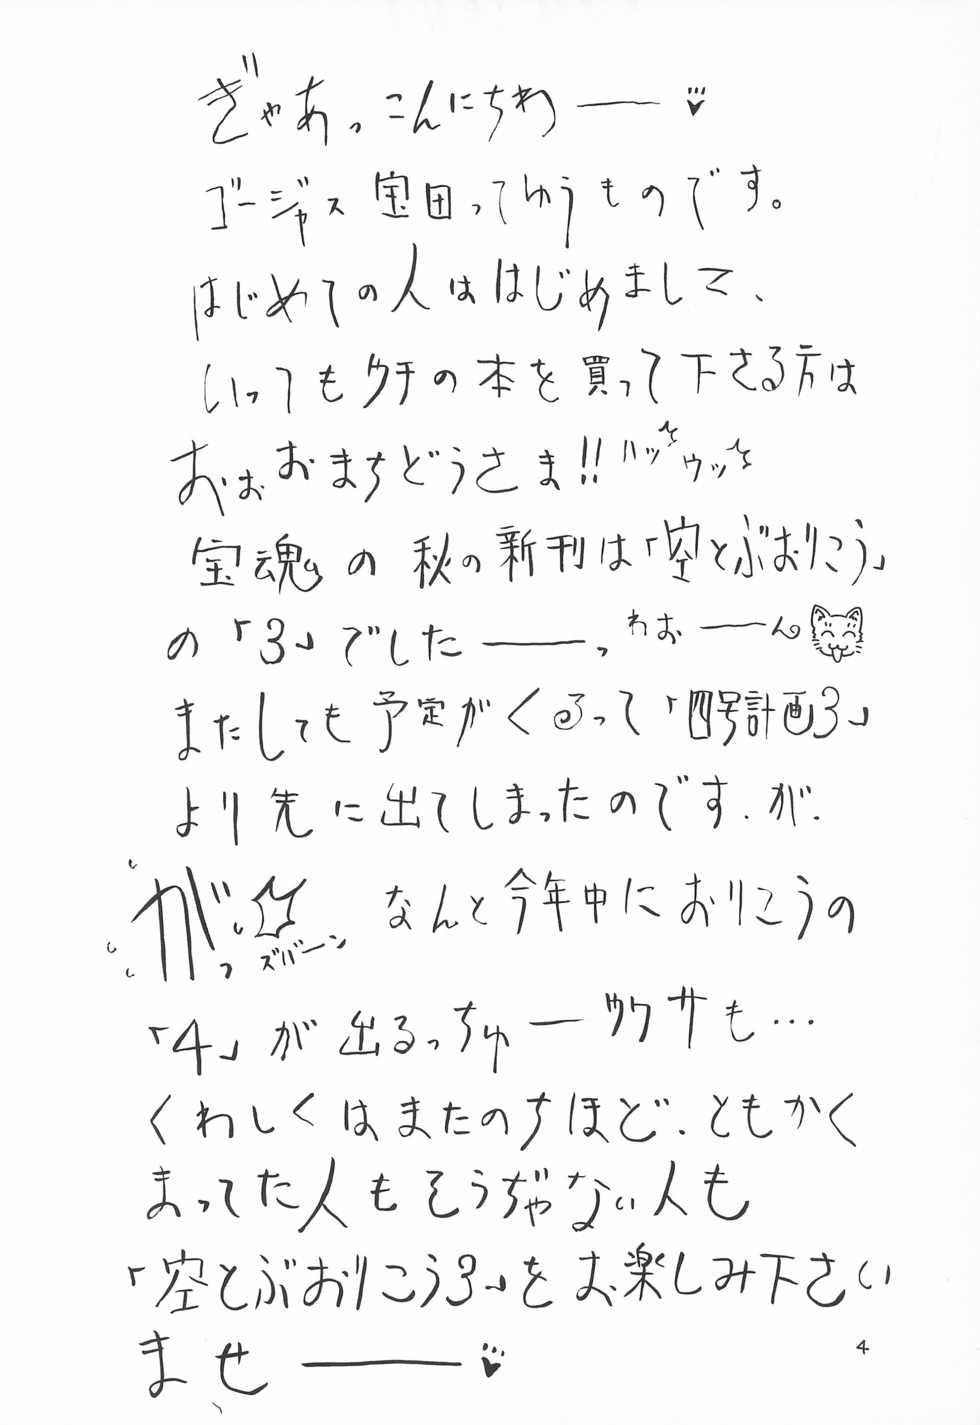 ぎゃあっこんにちわ――♥
ゴージャス宝田ってゆうものです。
はじめての人ははじめまして、
いっつもウチの本を買って下さる方は
おぉおまちどうさま!!ハッウッ
宝魂の秋の新刊は「空とぶおりこう」
の「3」でした――っわお――ん
またしても予定がくるって「四号計画3」
より先に出てしまったのです.が.
がっズバーンなんと今年中におりこうの
「4」が出るっちゅーウワサも…
くわしくはまたのちほど.ともかく
まってた人もそうぢゃない人も
「空とぶおりこう3」をお楽しみ下さい
ませ――♥
4